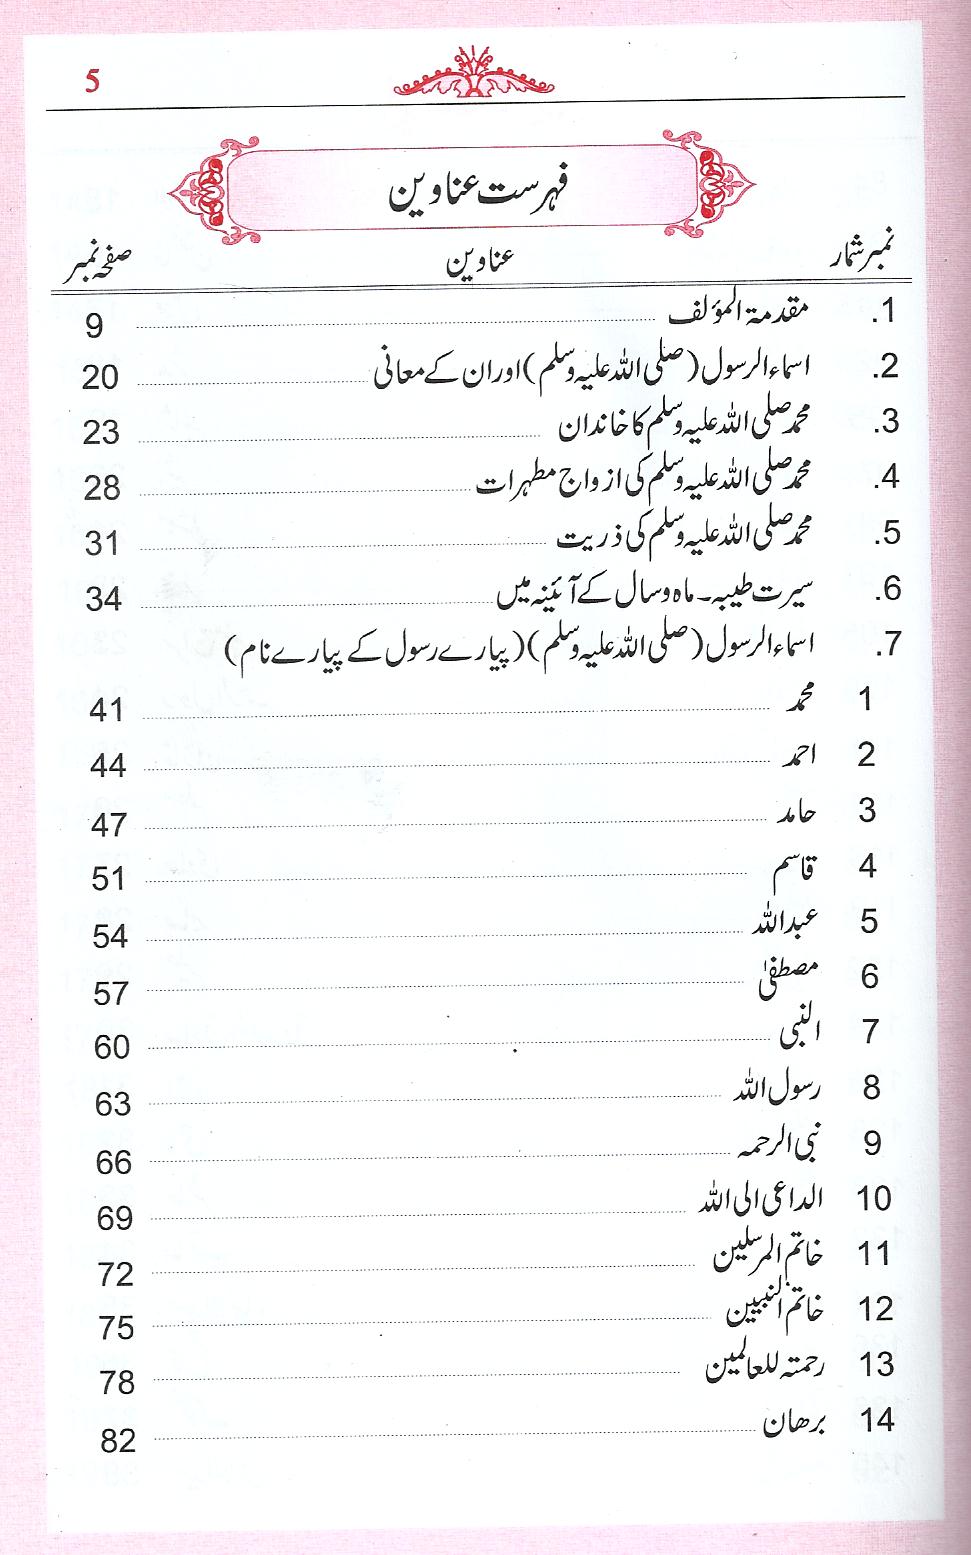 5
فہرست عناوین
نمبر شمار عناوین صفحہ نمبر
1. مقدمۃ المؤلف 9
2. اسماء الرسول (صلی اللہ علیہ وسلم) اور ان کے معانی 20
3. محمد صلی اللہ علیہ وسلم کا خاندان 23
4. محمد صلی اللہ علیہ وسلم کی ازواج مطہرات 28
5. محمد صلی اللہ علیہ وسلم کی ذریت 31
6. سیرت طیبہ۔ ماہ وسال کے آئینہ میں 34
7. اسماء الرسول (صلی اللہ علیہ وسلم) (پیارے رسول کے پیارے نام)
1 محمد 41
2 احمد 44
3 حامد 47
4 قاسم 51
5 عبداللہ 54
6 مصطفیٰ 57
7 النبی 60
8 رسول اللہ 63
9 نبی الرحمہ 66
10 الداعی الی اللہ 69
11 خاتم المرسلین 72
12 خاتم النبیین 75
13 رحمتہ للعالمین 78
14 برھان 82